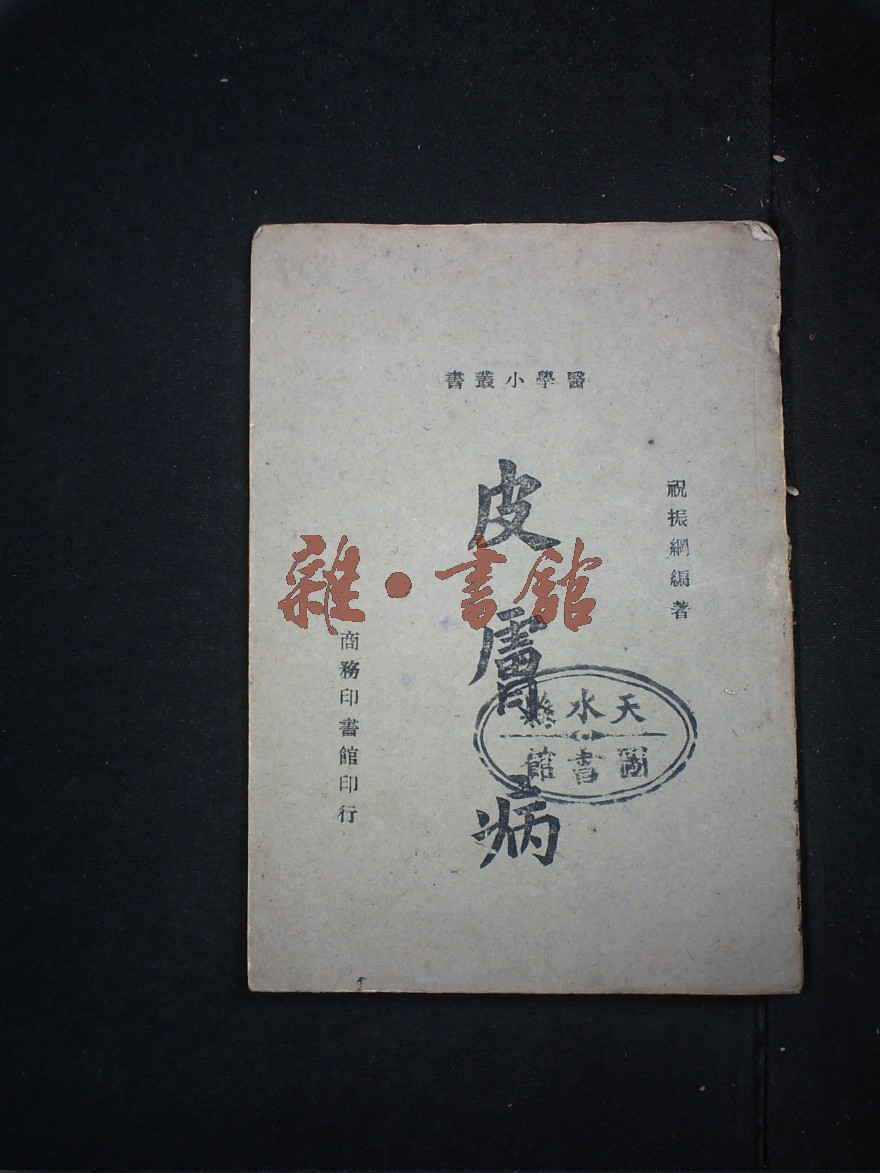 醫學小叢書
祝振綱編著
皮膚病
商務印書館印行
雜·書館
天水縣
圖書館